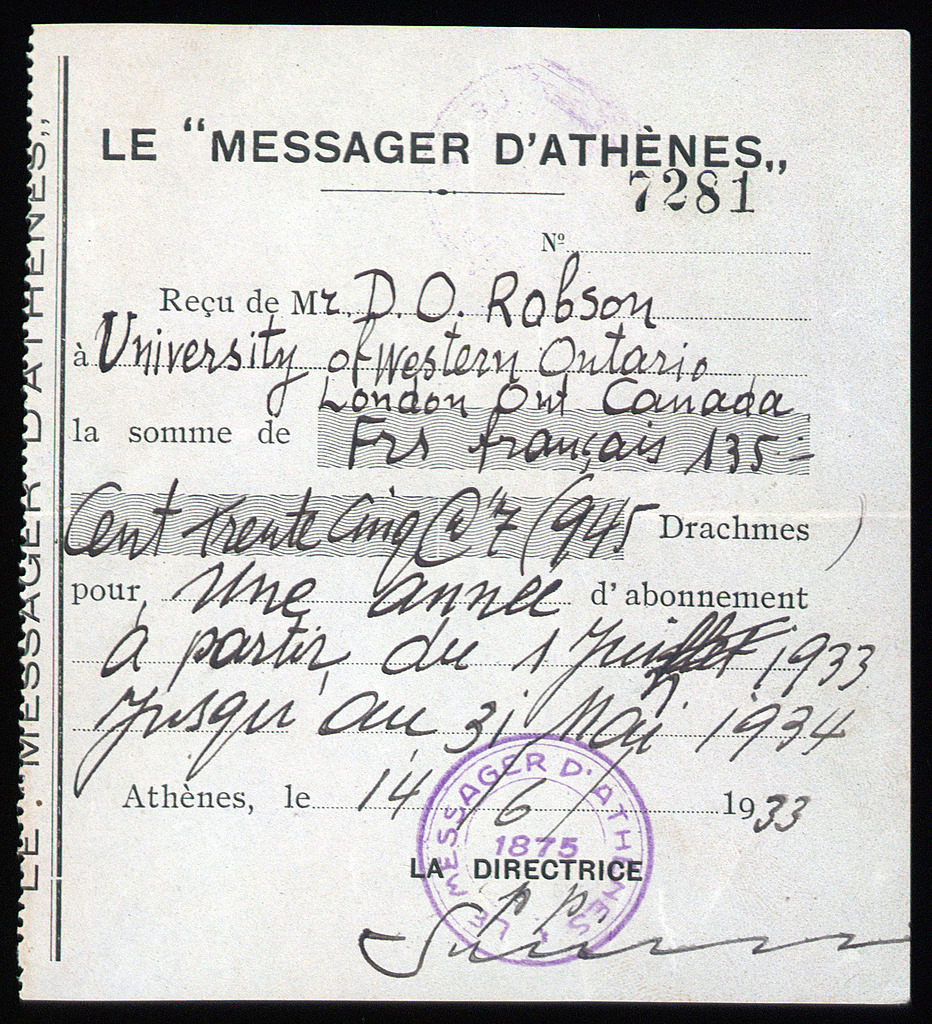 LE "MESSAGER D'ATHÈNES„
7281
Nº
Reçu de Mr. D. O. Robson
à University of Western Ontario
London Ont Canada
la somme de Frs français 135=
Cent trente cinq @ 7 (945 Drachmes )
pour une année d'abonnement
à partir du 1 1933
jusqu au 31 Mai 1934
Athènes, le 14/6/ 1933
LA DIRECTRICE
pp.
LE MESSAGER D'ATHÈNES
1875
LE "MESSAGER D'ATHÈNES„